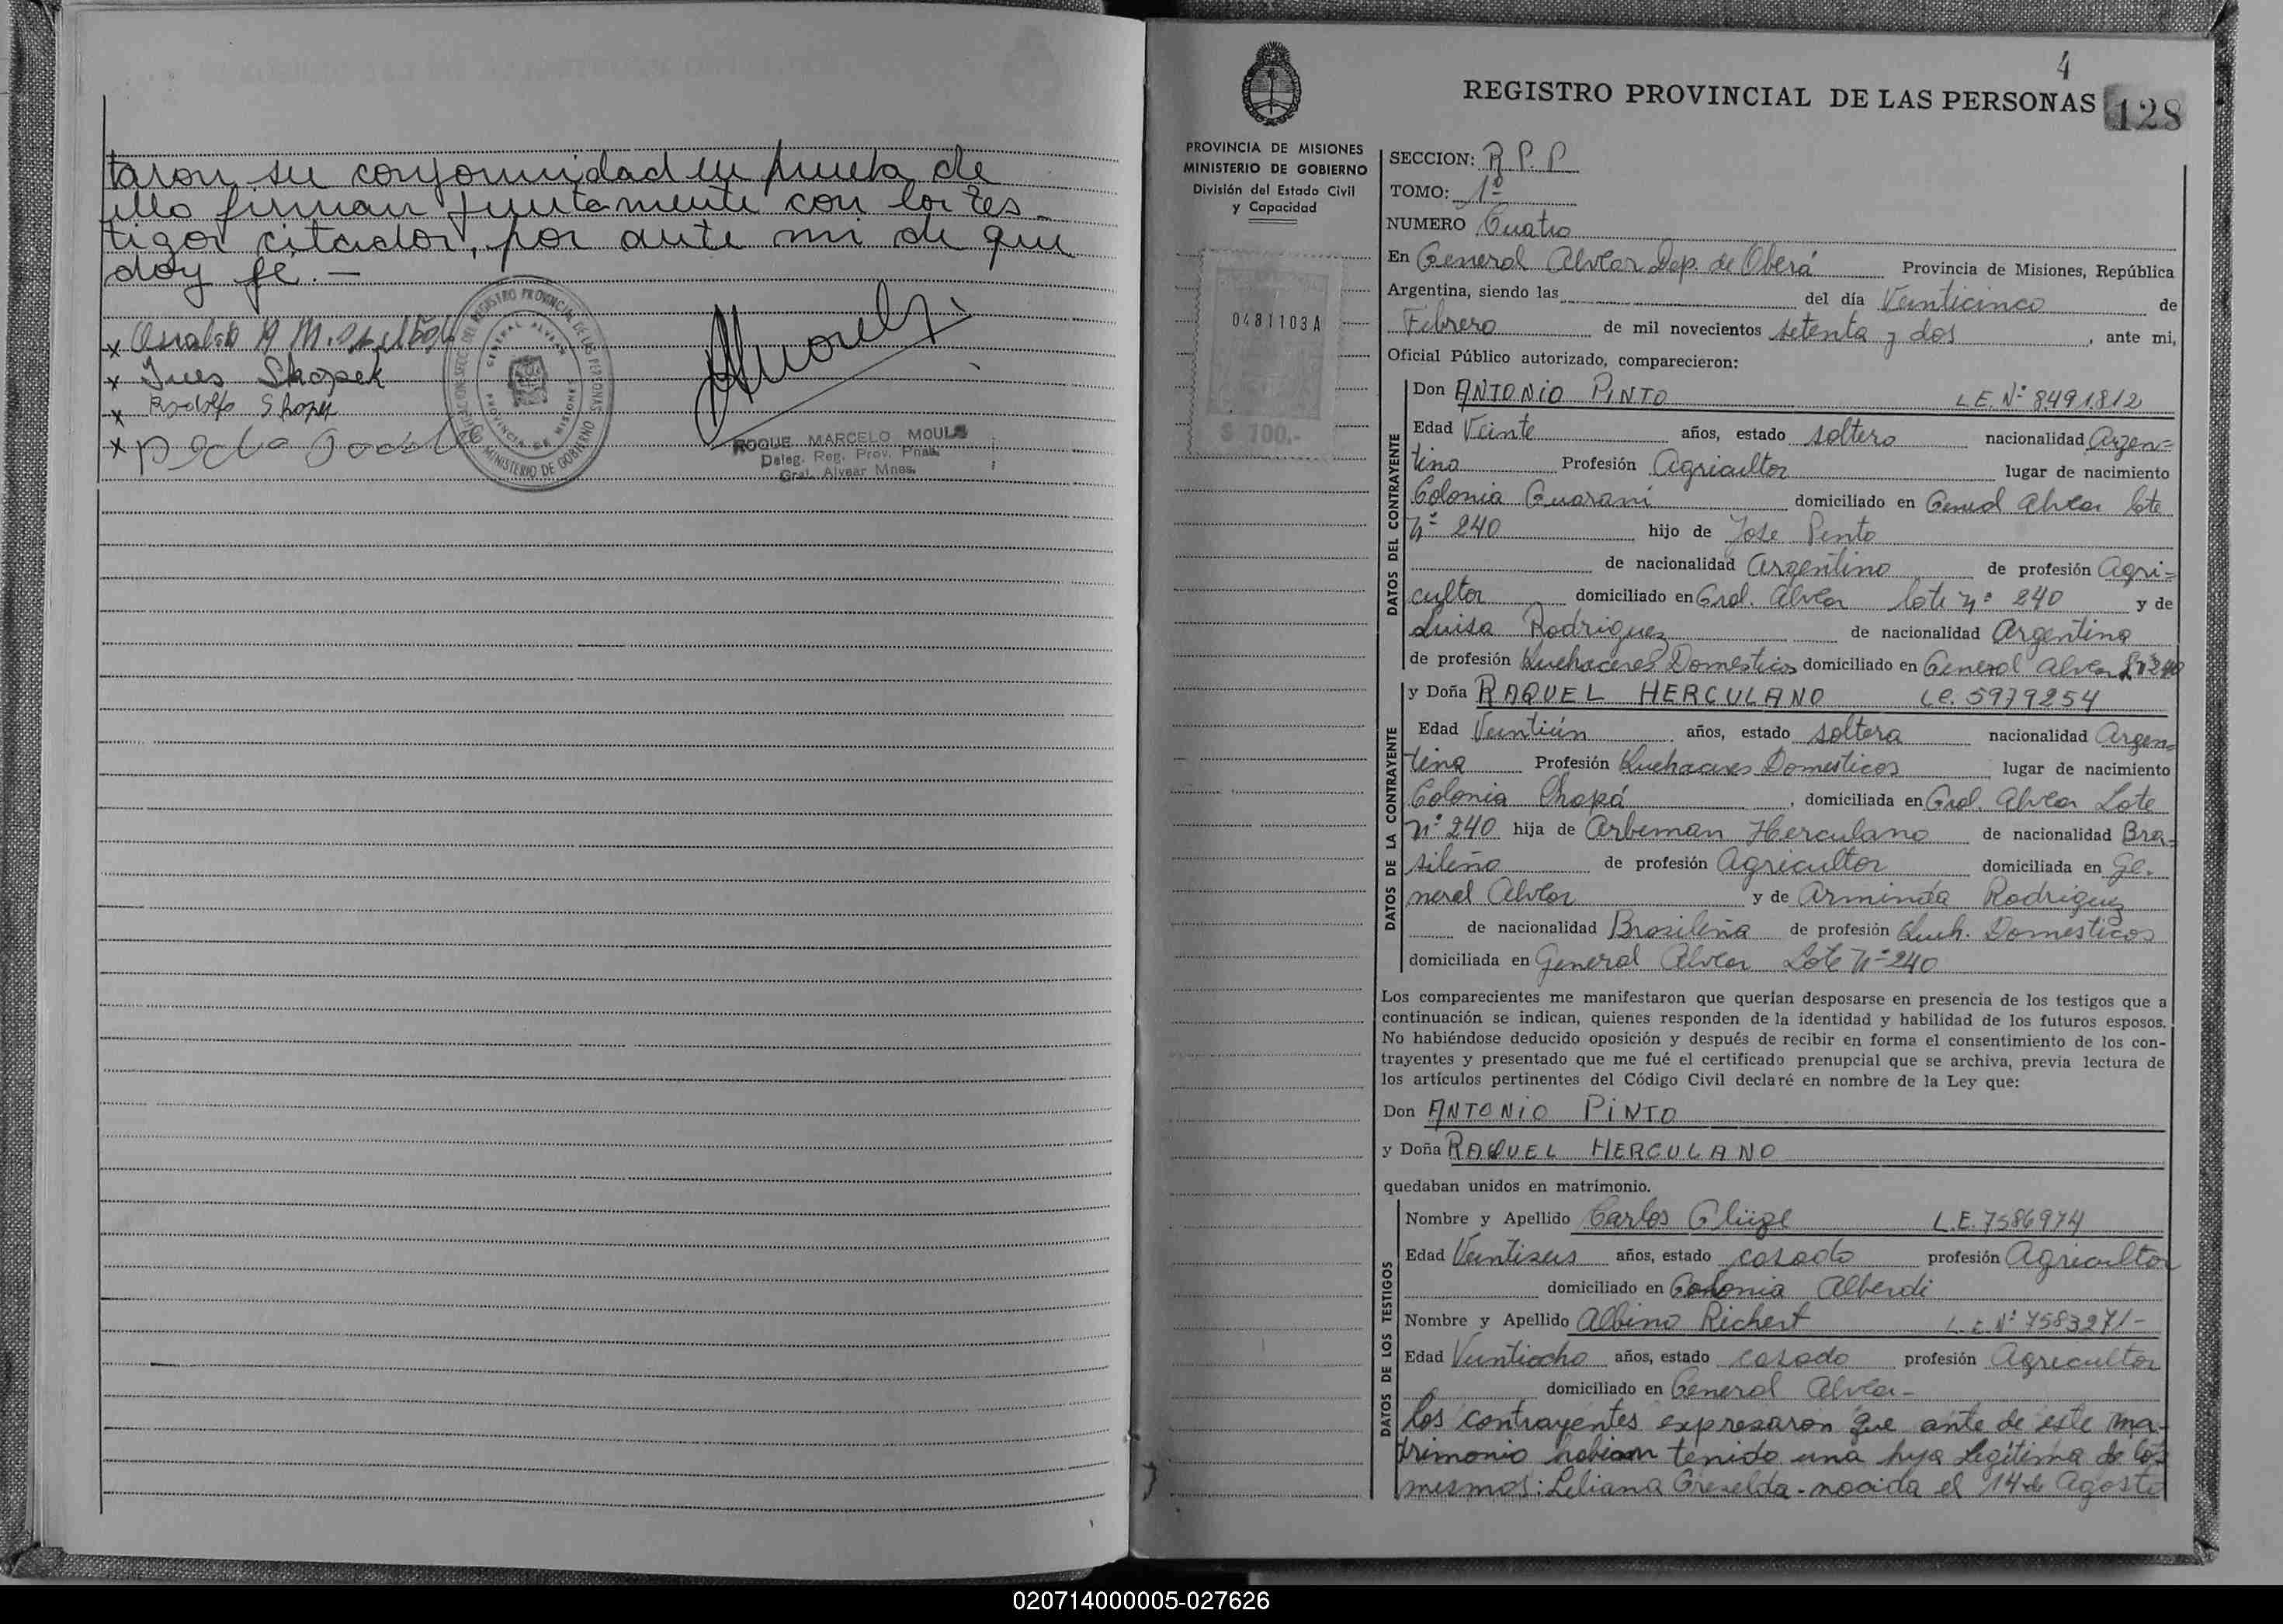 taron su conformidad en prueba de
ello firman juntamente con los tes-
tigos citados, por ante mi de que
doy fe.-
x Osvaldo A M.
x Ines Skopek
x Rodolfo Skopek
x
REGISTRO PROVINCIAL DE LAS PERSONAS
GENERAL ALVEAR
PROVINCIA DE MISIONES
MINISTERIO DE GOBIERNO
ROQUE MARCELO MOULA
Deleg. Reg. Prov. Pnas.
Gral. Alvear Mnes.
4
REGISTRO PROVINCIAL DE LAS PERSONAS 128
PROVINCIA DE MISIONES
MINISTERIO DE GOBIERNO
División del Estado Civil
y Capacidad
0481103A
$ 700.-
SECCION: R.P.P
TOMO: 1º
NUMERO Cuatro
En General Alvear Dep. de Oberá Provincia de Misiones, República
Argentina, siendo las del día Veinticinco de
Febrero de mil novecientos setenta y dos, ante mi,
Oficial Público autorizado, comparecieron:
DATOS DEL CONTRAYENTE
Don ANTONIO PINTO L.E. Nº 8491812
Edad Veinte años, estado soltero nacionalidad Argen=
tina Profesión Agricultor lugar de nacimiento
Colonia Guarani domiciliado en General Alvear lote
Nº 240 hijo de Jose Pinto
de nacionalidad Argentino de profesión Agri=
cultor domiciliado en Gral. Alvear lote nº 240 y de
Luisa Rodriguez de nacionalidad Argentina
de profesión Quehaceres Domesticos domiciliado en General Alvear Lº 240
DATOS DE LA CONTRAYENTE
y Doña RAQUEL HERCULANO L.C. 5979254
Edad Veintiún años, estado soltera nacionalidad Argen=
tina Profesión Quehaceres Domesticos lugar de nacimiento
Colonia Chapá, domiciliada en Gral. Alvear Lote
nº 240 hija de Arbeman Herculano de nacionalidad Bra=
sileño de profesión Agricultor domiciliada en Ge-
neral Alvear y de Arminda Rodriguez
de nacionalidad Brasileña de profesión Queh. Domesticos
domiciliada en General Alvear Lote Nº 240
Los comparecientes me manifestaron que querían desposarse en presencia de los testigos que a
continuación se indican, quienes responden de la identidad y habilidad de los futuros esposos.
No habiéndose deducido oposición y después de recibir en forma el consentimiento de los con-
trayentes y presentado que me fué el certificado prenupcial que se archiva, previa lectura de
los artículos pertinentes del Código Civil declaré en nombre de la Ley que:
Don ANTONIO PINTO
y Doña RAQUEL HERCULANO
quedaban unidos en matrimonio.
DATOS DE LOS TESTIGOS
Nombre y Apellido Carlos Glüge L.E. 7586974
Edad Veintiseis años, estado casado profesión Agricultor
domiciliado en Colonia Alberdi
Nombre y Apellido Albino Richert L.E. Nº 7583271-
Edad Veintiocho años, estado casado profesión Agricultor
domiciliado en General Alvear-
los contrayentes expresaron que ante de este ma-
trimonio habian tenido una hija legitima de los
mesmos: Liliana Griselda - nacida el 14 de Agosto
020714000005-027626